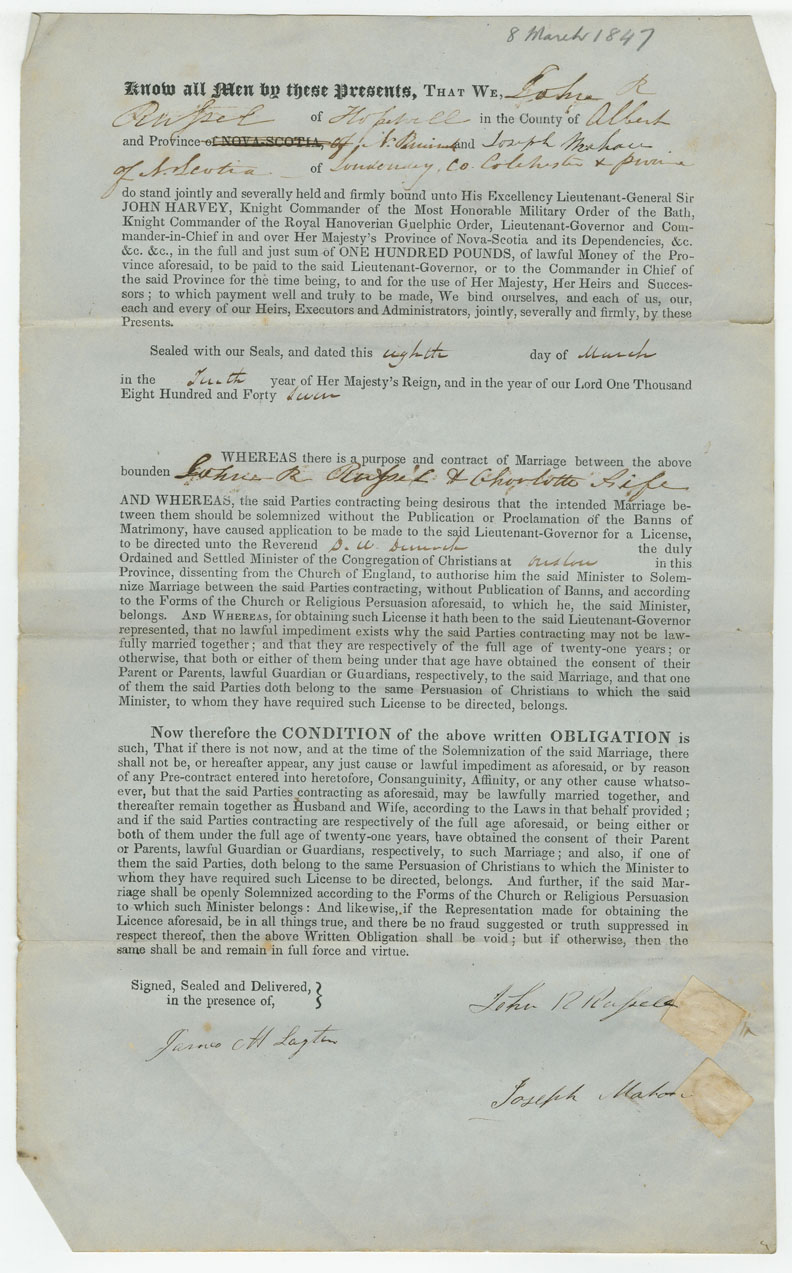 8 March 1847
Know all Men by these Presents, THAT WE, John R
Russel of Hopewell in the County of Albert
and Province of NOVA-SCOTIA, of N. Brunsk and Joseph Mahon
of N. Scotia of Londonderry, Co. Colchester & Province
do stand jointly and severally held and firmly bound unto His Excellency Lieutenant-General Sir
JOHN HARVEY, Knight Commander of the Most Honorable Military Order of the Bath,
Knight Commander of the Royal Hanoverian Guelphic Order, Lieutenant-Governor and Com-
mander-in-Chief in and over Her Majesty's Province of Nova-Scotia and its Dependencies, &c.
&c. &c., in the full and just sum of ONE HUNDRED POUNDS, of lawful Money of the Pro-
vince aforesaid, to be paid to the said Lieutenant-Governor, or to the Commander in Chief of
the said Province for the time being, to and for the use of Her Majesty, Her Heirs and Succes-
sors ; to which payment well and truly to be made, We bind ourselves, and each of us, our,
each and every of our Heirs, Executors and Administrators, jointly, severally and firmly, by these
Presents.
Sealed with our Seals, and dated this eighth day of March
in the Tenth year of Her Majesty's Reign, and in the year of our Lord One Thousand
Eight Hundred and Forty Seven
WHEREAS there is a purpose and contract of Marriage between the above
bounden John R Russel & Charlotte Fife
AND WHEREAS, the said Parties contracting being desirous that the intended Marriage be-
tween them should be solemnized without the Publication or Proclamation of the Banns of
Matrimony, have caused application to be made to the said Lieutenant-Governor for a License,
to be directed unto the Reverend D. W. Dimock the duly
Ordained and Settled Minister of the Congregation of Christians at Onslow in this
Province, dissenting from the Church of England, to authorise him the said Minister to Solem-
nize Marriage between the said Parties contracting, without Publication of Banns, and according
to the Forms of the Church or Religious Persuasion aforesaid, to which he, the said Minister,
belongs. AND WHEREAS, for obtaining such License it hath been to the said Lieutenant-Governor
represented, that no lawful impediment exists why the said Parties contracting may not be law-
fully married together ; and that they are respectively of the full age of twenty-one years ; or
otherwise, that both or either of them being under that age have obtained the consent of their
Parent or Parents, lawful Guardian or Guardians, respectively, to the said Marriage, and that one
of them the said Parties doth belong to the same Persuasion of Christians to which the said
Minister, to whom they have required such License to be directed, belongs.
Now therefore the CONDITION of the above written OBLIGATION is
such, That if there is not now, and at the time of the Solemnization of the said Marriage, there
shall not be, or hereafter appear, any just cause or lawful impediment as aforesaid, or by reason
of any Pre-contract entered into heretofore, Consanguinity, Affinity, or any other cause whatso-
ever, but that the said Parties contracting as aforesaid, may be lawfully married together, and
thereafter remain together as Husband and Wife, according to the Laws in that behalf provided ;
and if the said Parties contracting are respectively of the full age aforesaid, or being either or
both of them under the full age of twenty-one years, have obtained the consent of their Parent
or Parents, lawful Guardian or Guardians, respectively, to such Marriage ; and also, if one of
them the said Parties, doth belong to the same Persuasion of Christians to which the Minister to
whom they have required such License to be directed, belongs. And further, if the said Mar-
riage shall be openly Solemnized according to the Forms of the Church or Religious Persuasion
to which such Minister belongs : And likewise, if the Representation made for obtaining the
Licence aforesaid, be in all things true, and there be no fraud suggested or truth suppressed in
respect thereof, then the above Written Obligation shall be void ; but if otherwise, then the
same shall be and remain in full force and virtue.
Signed, Sealed and Delivered,
in the presence of, }
John R Russell
James H Layton
Joseph Mahon